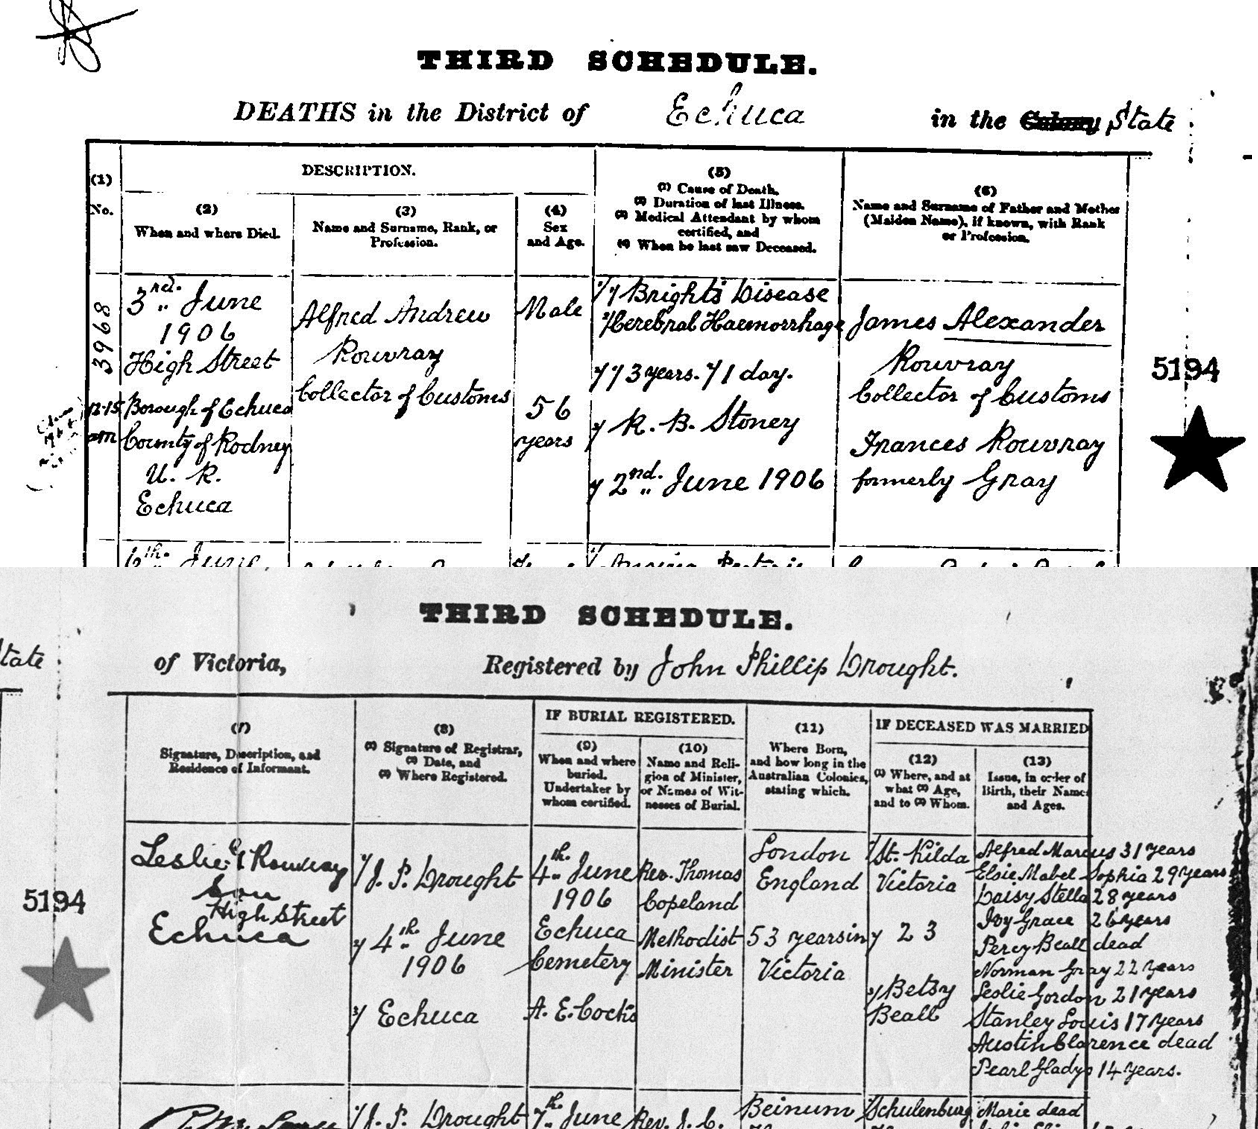 THIRD SCHEDULE.
DEATHS in the District of Echuca in the Colony State
DESCRIPTION.
(1)
No.
(2)
When and where Died.
(3)
Name and Surname, Rank, or
Profession.
(4)
Sex
and Age.
(5)
(1) Cause of Death,
(2) Duration of last Illness.
(3) Medical Attendant by whom
certified, and
(4) When he last saw Deceased.
(6)
Name and Surname of Father and Mother
(Maiden Name), if known, with Rank
or Profession.
3968
3rd. June
1906
High Street
12.15 Borough of Echuca
pm County of Rodney
U. R.
Echuca
Alfred Andrew
Rouvray
Collector of Customs
Male
56
years
1/ Bright's Disease
Cerebral Haemorrhage
3 years. 1 day.
R. B. Stoney
2nd. June 1906
James Alexander
Rouvray
Collector of Customs
Frances Rouvray
formerly Gray
5194
6th. June
THIRD SCHEDULE.
State
of Victoria, Registered by John Phillip Drought.
(7)
Signature, Description, and
Residence of Informant.
(8)
(1) Signature of Registrar,
(2) Date, and
(3) Where Registered.
IF BURIAL REGISTERED.
(9)
When and where
buried.
Undertaker by
whom certified.
(10)
Name and Reli-
gion of Minister,
or Names of Wit-
nesses of Burial.
(11)
Where Born,
and how long in the
Australian Colonies,
stating which.
IF DECEASED WAS MARRIED
(12)
(1) Where, and at
what (2) Age,
and to (3) Whom.
(13)
Issue, in order of
Birth, their Names
and Ages.
5194
Leslie G Rouvray
Son
High Street
Echuca
1/ J. P. Drought
4th June
1906
Echuca
4th June
1906
Echuca
Cemetery
A. E. Cocks
Rev. Thomas
Copeland
Methodist
Minister
London
England
53 years in
Victoria
1/ St. Kilda
Victoria
23
Betsy
Beall
Alfred Marcus 31 years
Elsie Mabel Sophia 29 years
Daisy Stella 28 years
Ivy Grace 26 years
Percy Beall dead
Norman Gray 22 years
Leslie Gordon 21 years
Stanley Louis 17 years
Austin Clarence dead
Pearl Gladys 14 years.
1/ J. P. Drought
7th June
Rev. J. C.
Beinum
Schulenburg
Marie dead